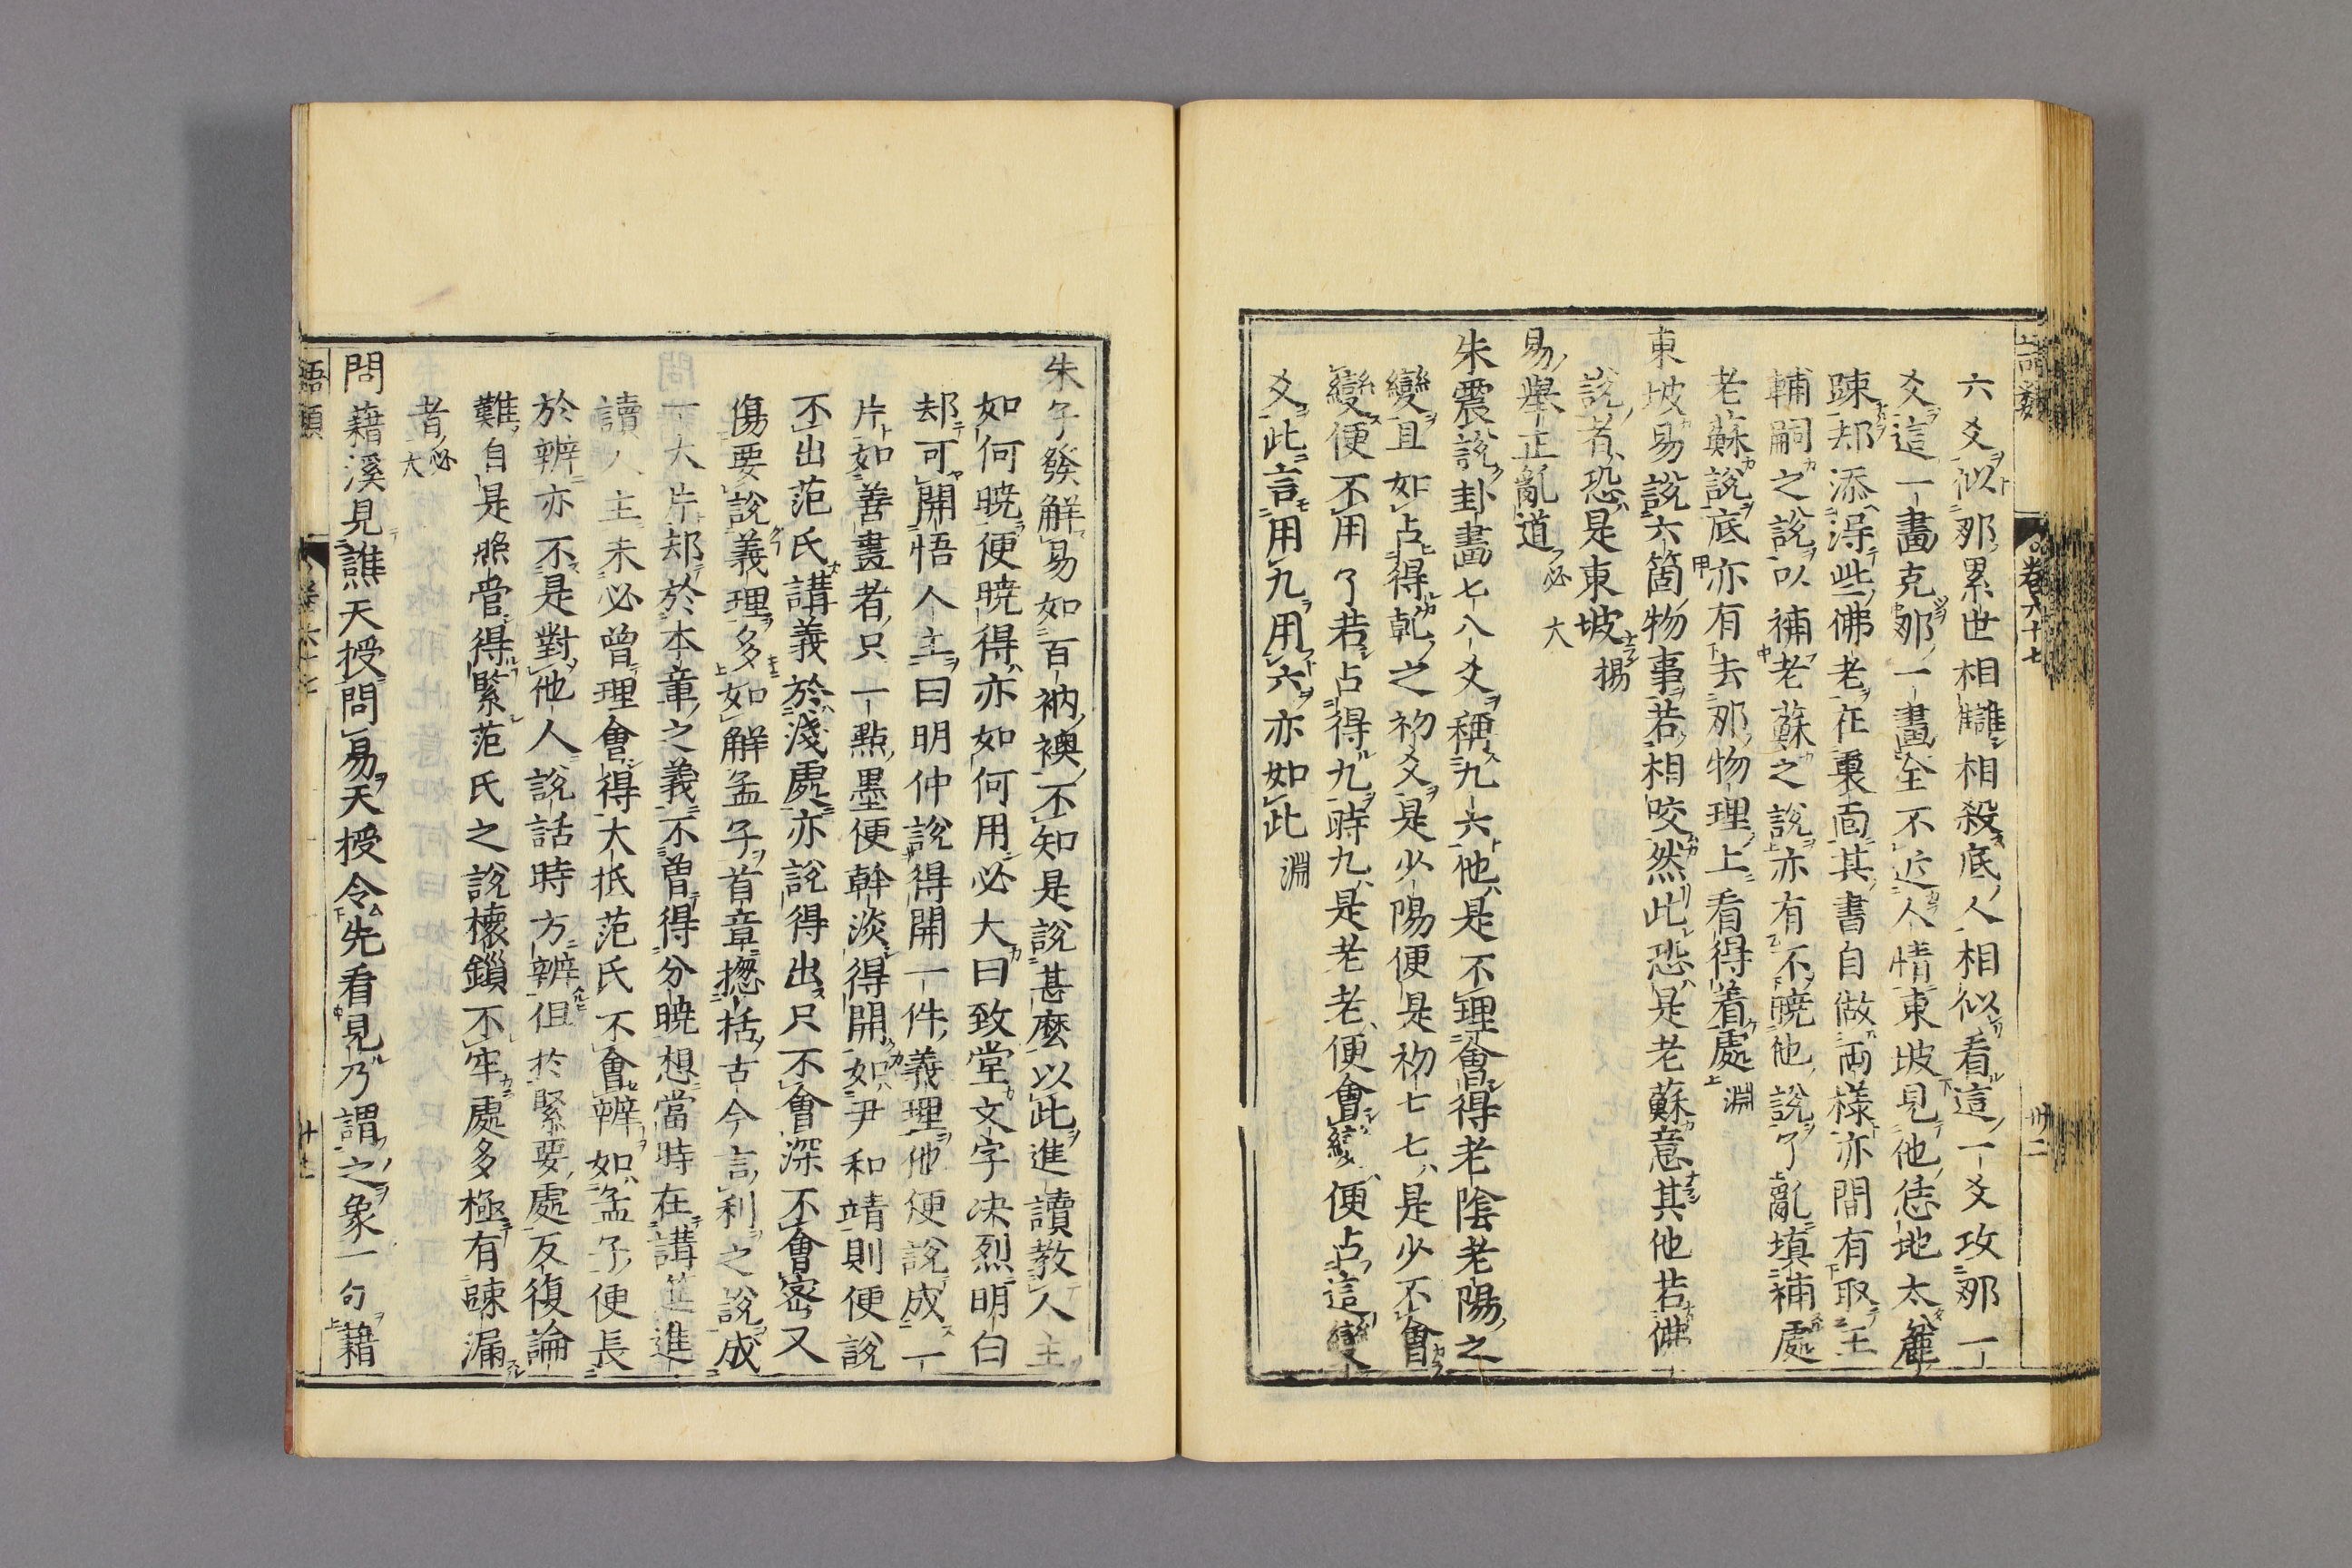 六爻似那累世相讎相殺底人相似看這一爻攻那一
爻這一畫克那一畫全不近人情東坡見他恁地太麄
踈却添得些佛老在裏面其書自做兩樣亦間有取王
輔嗣之說以補老蘇之說亦有不曉他說了亂塡補處
老蘇說底亦有去那物理上看得着處 淵
東坡易說六箇物事若相咬然此恐是老蘇意其他若佛
說者恐是東坡 揚
易舉正亂道 必大
朱震說卦畫七八爻稱九六他是不理會得老陰老陽之
變且如占得乾之初爻是少陽便是初七七是少不會
變便不用了若占得九時九是老老便會變便占這變
爻此言用九用六亦如此 淵
語類 卷六十七 卅二
朱子發解易如百衲襖不知是說甚麽以此進讀教人主
如何曉便曉得亦如何用必大曰致堂文字决烈明白
却可開悟人主曰明仲說得開一件義理他便說成一
片如善畫者只一點墨便幹淡得開如尹和靖則便說
不出范氏講義於淺處亦說得出只不會深不會密又
傷要說義理多如解孟子首章揔括古今言利之說成
一大片却於本章之義不曾得分曉想當時在講筵進
讀人主未必曾理會得大抵范氏不會辨如孟子便長
於辨亦不是對他人說話時方辨但於緊要處反復論
難自是照管得緊范氏之說櫰鎻不牢處多極有踈漏
者必大
問藉溪見譙天授問易天授令先看見乃謂之象一句藉
語類 卷六十七